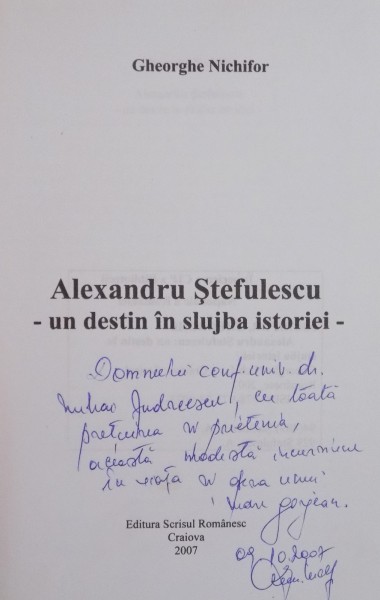 Gheorghe Nichifor
Alexandru Ștefulescu
- un destin în slujba istoriei -
Domnului conf. univ. dr.
Mihai Andreescu, cu toată
prețuirea și prietenia,
această modestă incursiune
în viața și opera unui
mare gorjean.
Editura Scrisul Românesc
Craiova
2007
09.10.2007